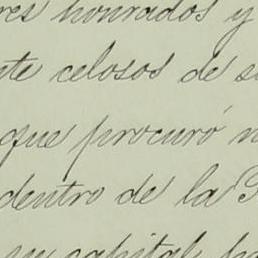 res honrados y
te celosos de s
que procuró n
dentro de la
su capital, ha